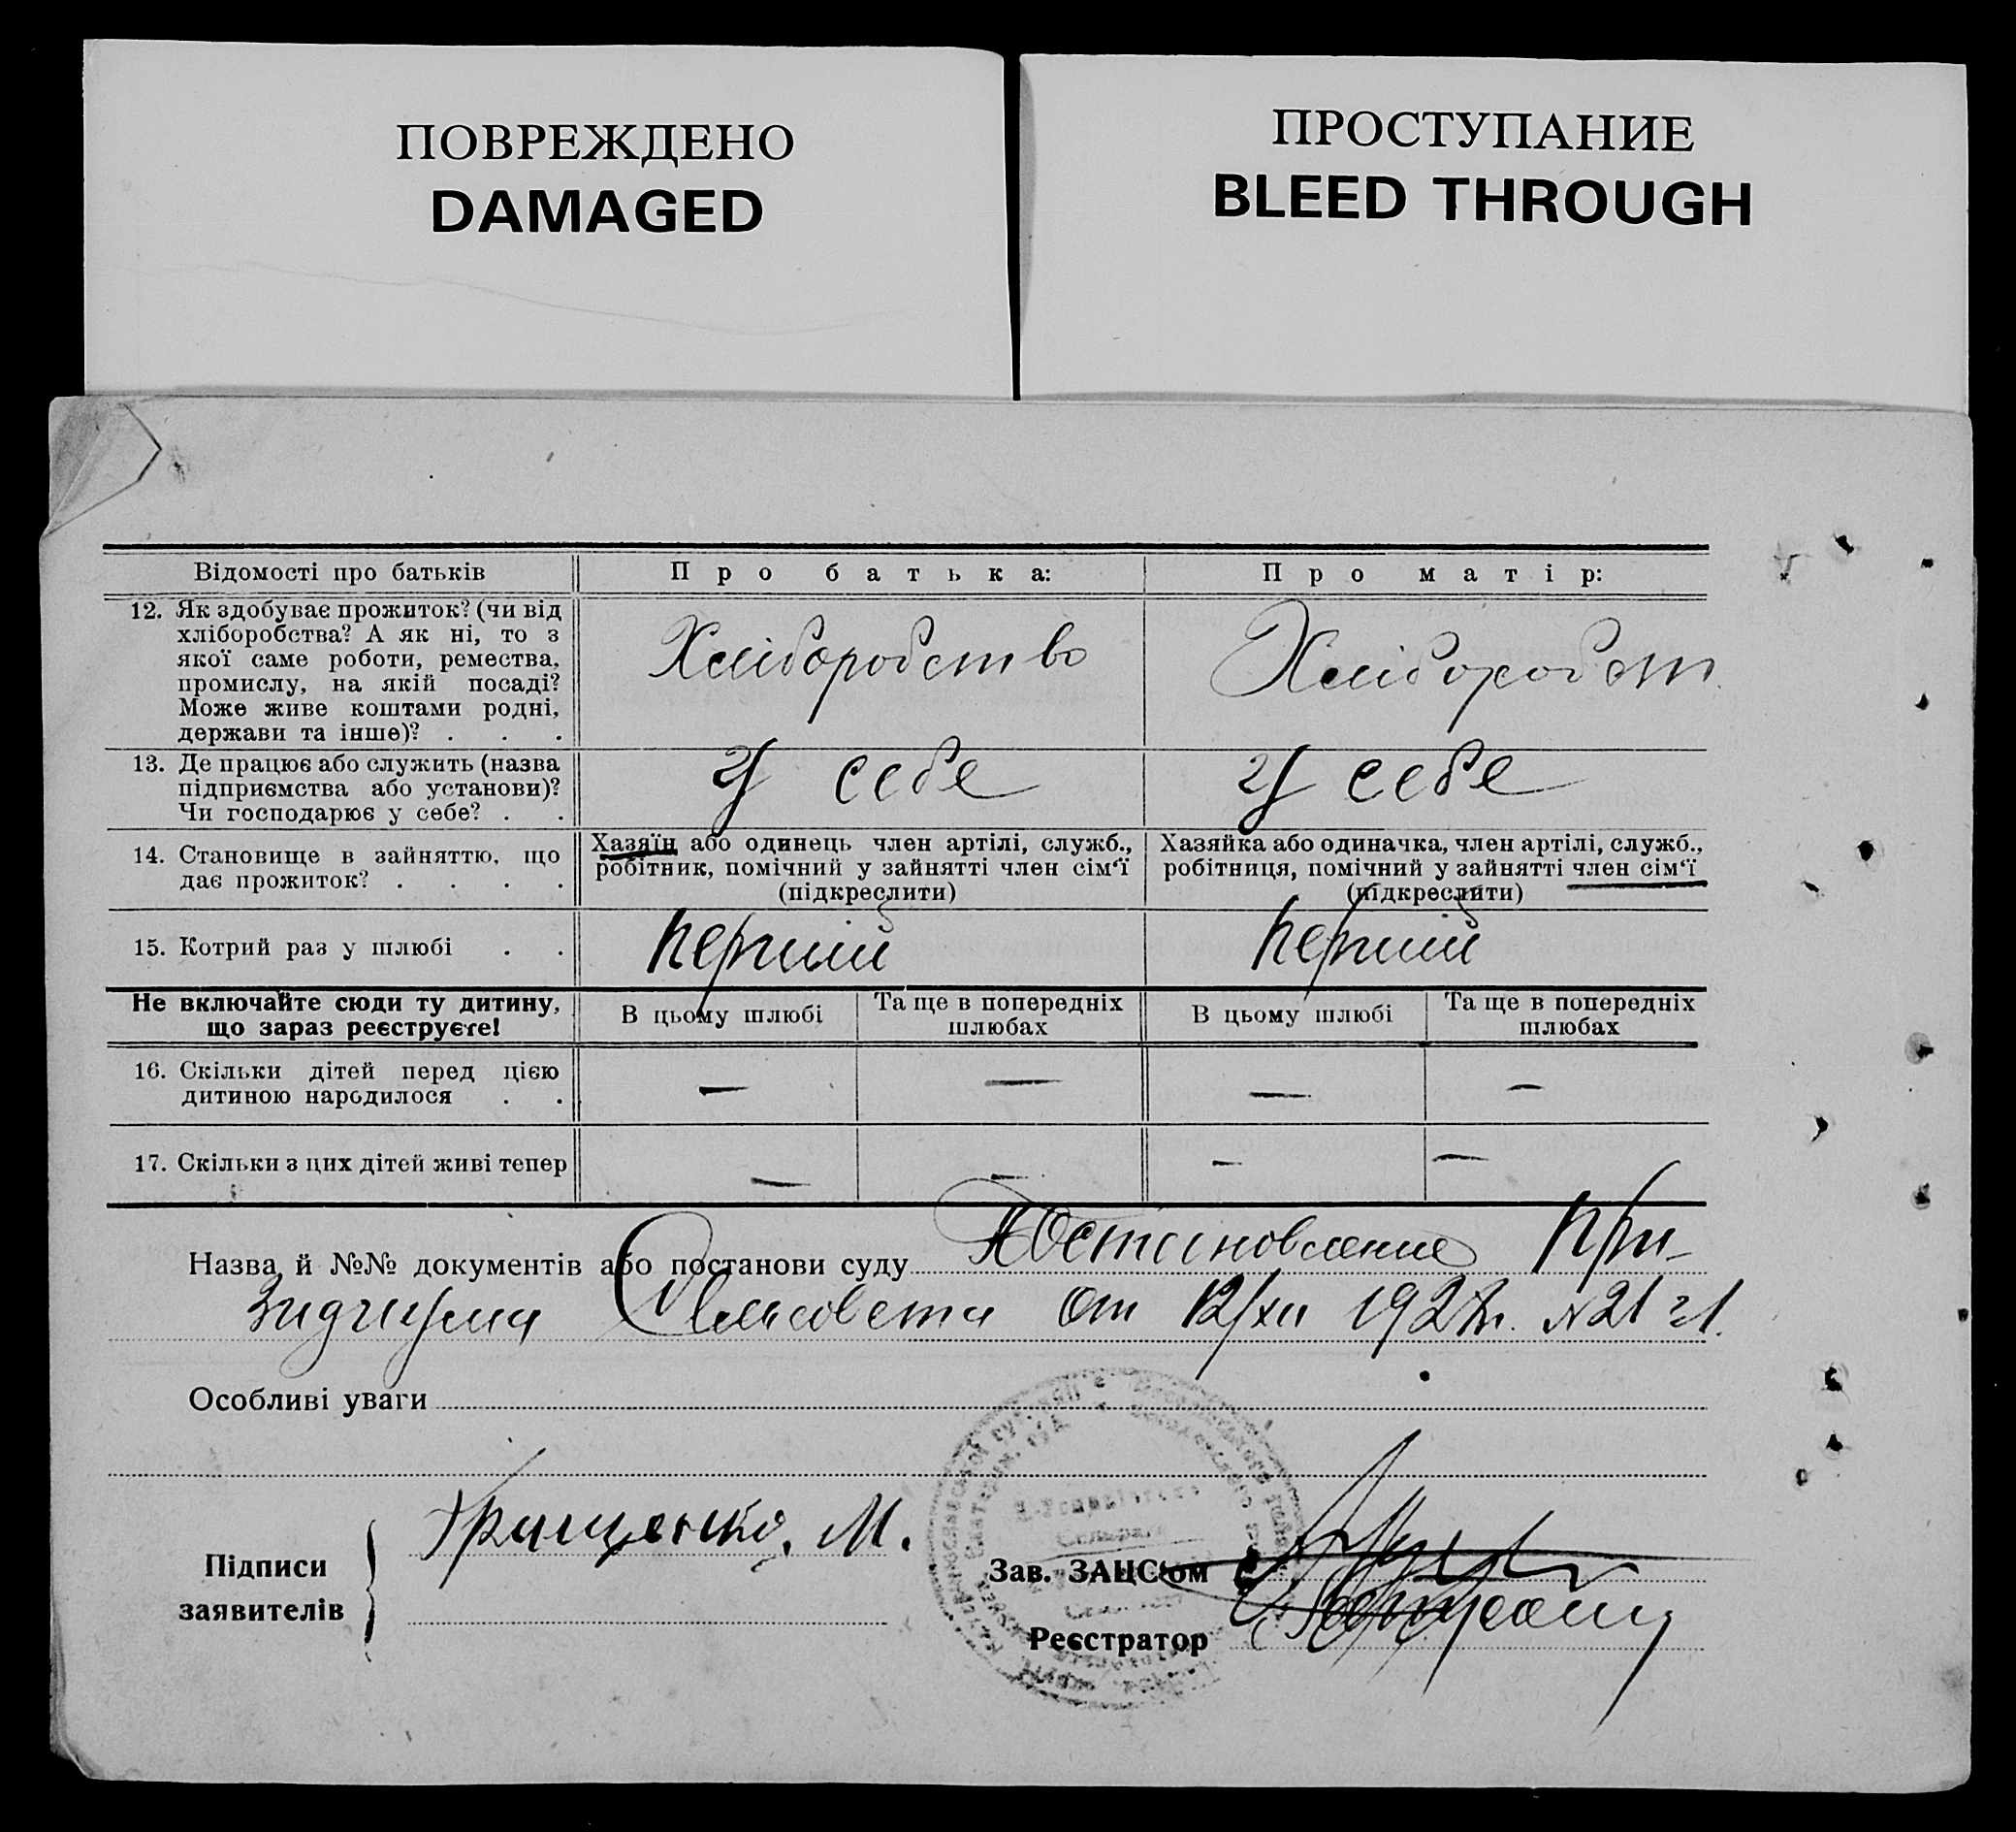 ПОВРЕЖДЕНО
DAMAGED
ПРОСТУПАНИЕ
BLEED THROUGH
Відомості про батьків
Про батька:
Про матір:
12. Як здобуває прожиток? (чи від
хліборобства? А як ні, то з
якої саме роботи, ремества,
промислу, на якій посаді?
Може живе коштами родні,
держави та інше)? . . .
Хліборобство
Хлібороб ст.
13. Де працює або служить (назва
підприємства або установи)?
Чи господарює у себе? . .
У себе
У себе
14. Становище в зайняттю, що
дає прожиток? . . . .
Хазяїн або одинець член артілі, служб.,
робітник, помічний у зайнятті член сім‘ї
(підкреслити)
Хазяйка або одиначка, член артілі, служб.,
робітниця, помічний у зайнятті член сім‘ї
(підкреслити)
15. Котрий раз у шлюбі . .
перший
перший
Не включайте сюди ту дитину,
що зараз реєструєте!
В цьому шлюбі
Та ще в попередніх
шлюбах
В цьому шлюбі
Та ще в попередніх
шлюбах
16. Скільки дітей перед цією
дитиною народилося . .
— — — —
17. Скільки з цих дітей живі тепер
— — — —
Назва й №№ документів або постанови суду Постановление При-
Сельсовета от 12/XII 1927 г. №21
Особливі уваги
Підписи
заявителів
Грищенко. М.
Зав. ЗАЦС‘ом
Реєстратор